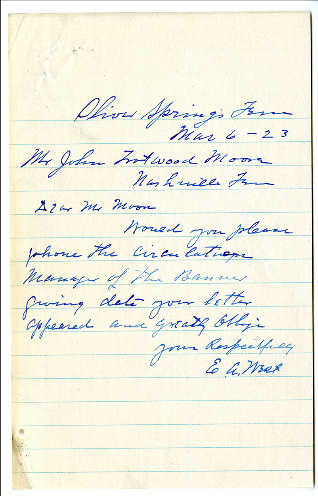 Oliver Springs Tenn
Mar 6 - 23
Mr John Trotwood Moore
Nashville Tenn
Dear Mr Moore
Would you please
phone the circulation
Manager of the Banner
giving date your letter
appeared and greatly Oblige
your Respectfully
E A. West